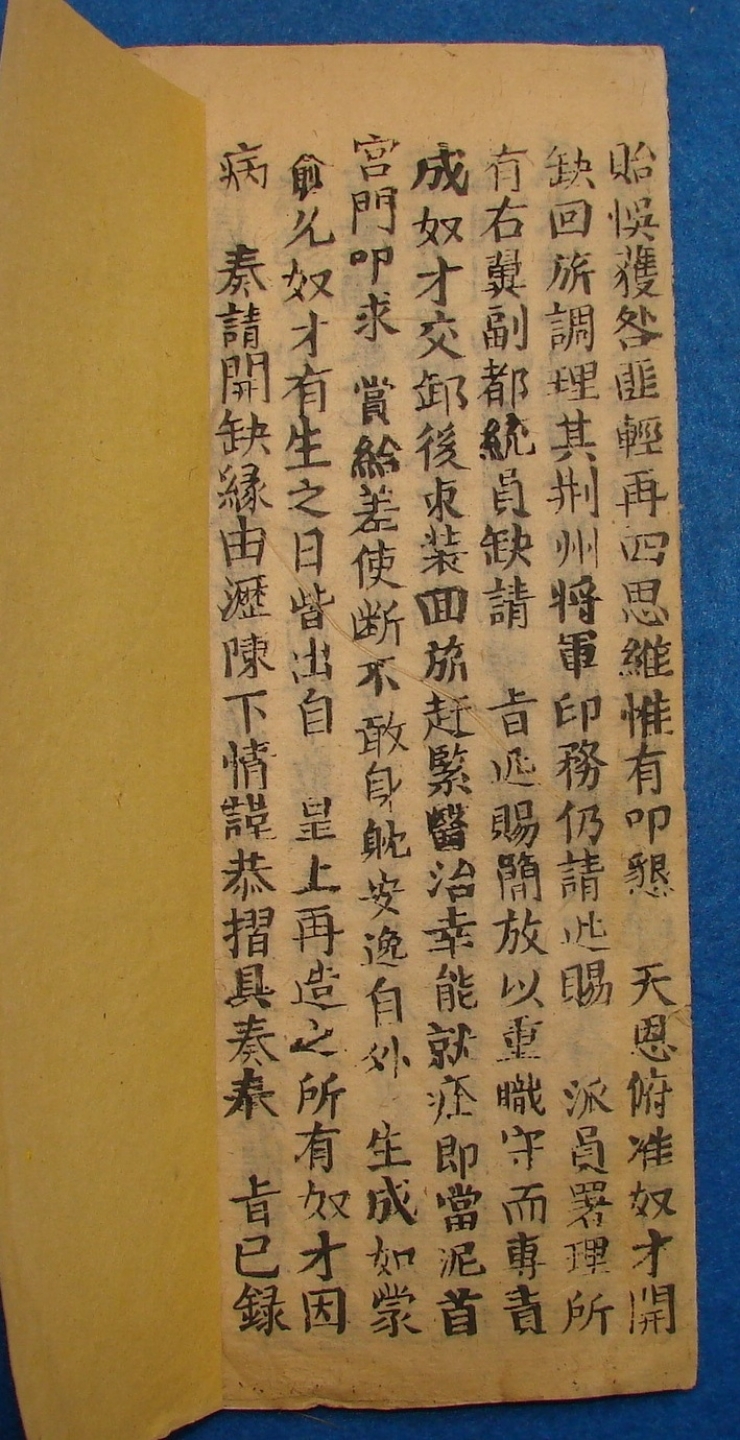 貽悞獲咎匪輕再四思維惟有叩懇　天恩俯准奴才開
缺回旂調理其荆州将軍印務仍請迅賜　派員署理所
有右翼副都統員缺請　旨迅賜簡放以重職守而專責
成奴才交卸後束装回旂赶緊醫治幸能就痊即當泥首
宮門叩求　賞給差使断不敢身躭安逸自外　生成如蒙
俞允奴才有生之日皆出自　皇上再造之所有奴才因
病　奏請開缺緣由瀝陳下情謹恭摺具奏奉　旨已録